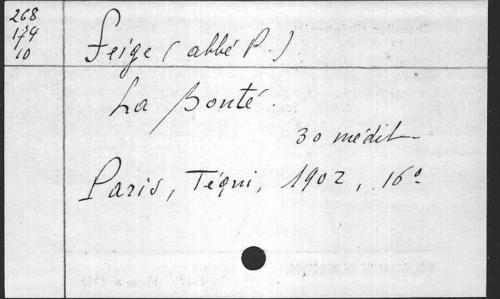 268
174
10
Feige (abbé P.)
La Bonté.
30 médit.
Paris, Téqui, 1902, 16º